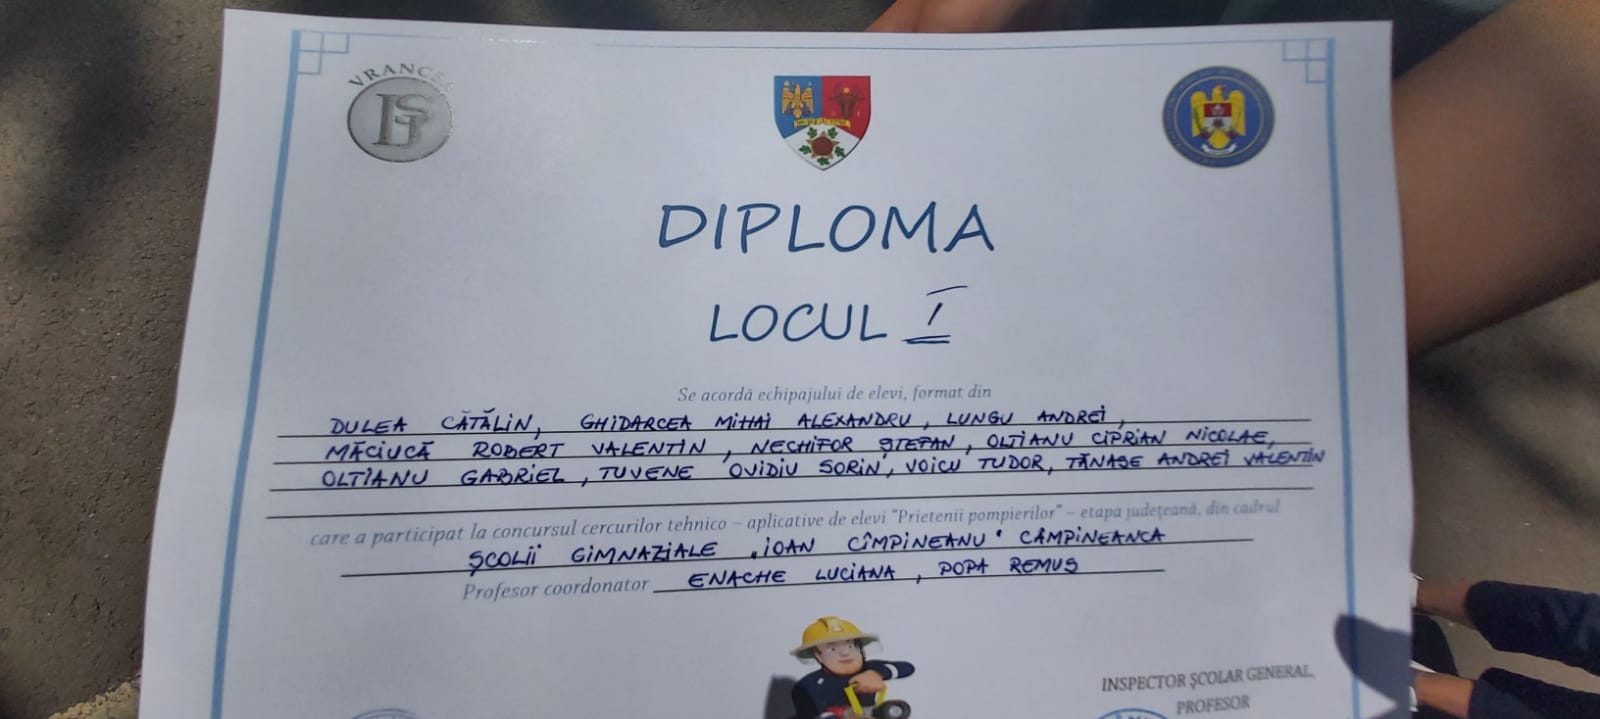 VRANCEA
ISJ
DIPLOMA
LOCUL I
Se acordă echipajului de elevi, format din
DULEA CĂTĂLIN, GHIDARCEA MIHAI ALEXANDRU, LUNGU ANDREI,
MĂCIUCĂ ROBERT VALENTIN, NECHIFOR ȘTEFAN, OLTIANU CIPRIAN NICOLAE,
OLTIANU GABRIEL, TUVENE OVIDIU SORIN, VOICU TUDOR, TĂNASE ANDREI VALENTIN
care a participat la concursul cercurilor tehnico – aplicative de elevi "Prietenii pompierilor" – etapa județeană, din cadrul
ȘCOLII GIMNAZIALE „IOAN CÎMPINEANU" CÂMPINEANCA
Profesor coordonator ENACHE LUCIANA, POPA REMUS
INSPECTOR ȘCOLAR GENERAL,
PROFESOR